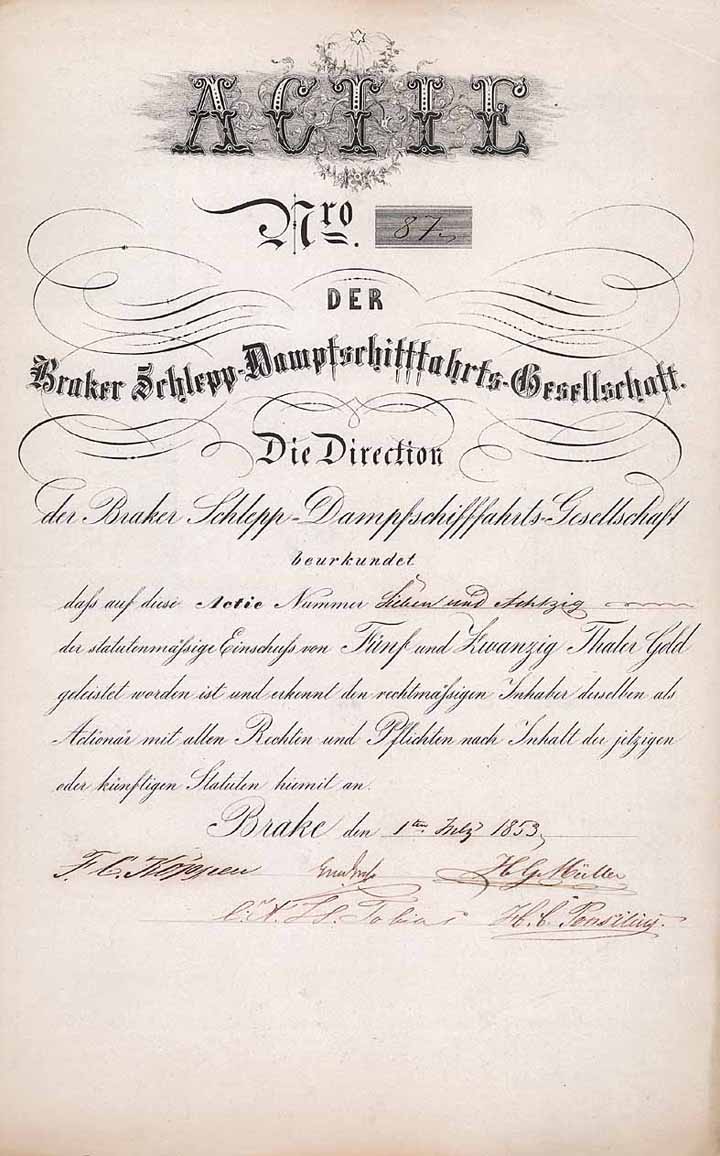 ACTIE
Nro. 87.
DER
Braker Schlepp-Dampfschifffahrts-Gesellschaft.
Die Direction
der Braker Schlepp-Dampfschifffahrts-Gesellschaft
beurkundet
daſs auf diese Actie Nummer Sieben und Achtzig
der statutenmäſsige Einschuſs von Fünf und Zwanzig Thaler Gold
geleistet worden ist und erkennt den rechtmäſsigen Inhaber derselben als
Actionär mit allen Rechten und Pflichten nach Inhalt der jetzigen
oder künftigen Statuten hiemit an.
Brake den 1ten July 1853
F. C. Köppen H G Müller
Tobias H. C.